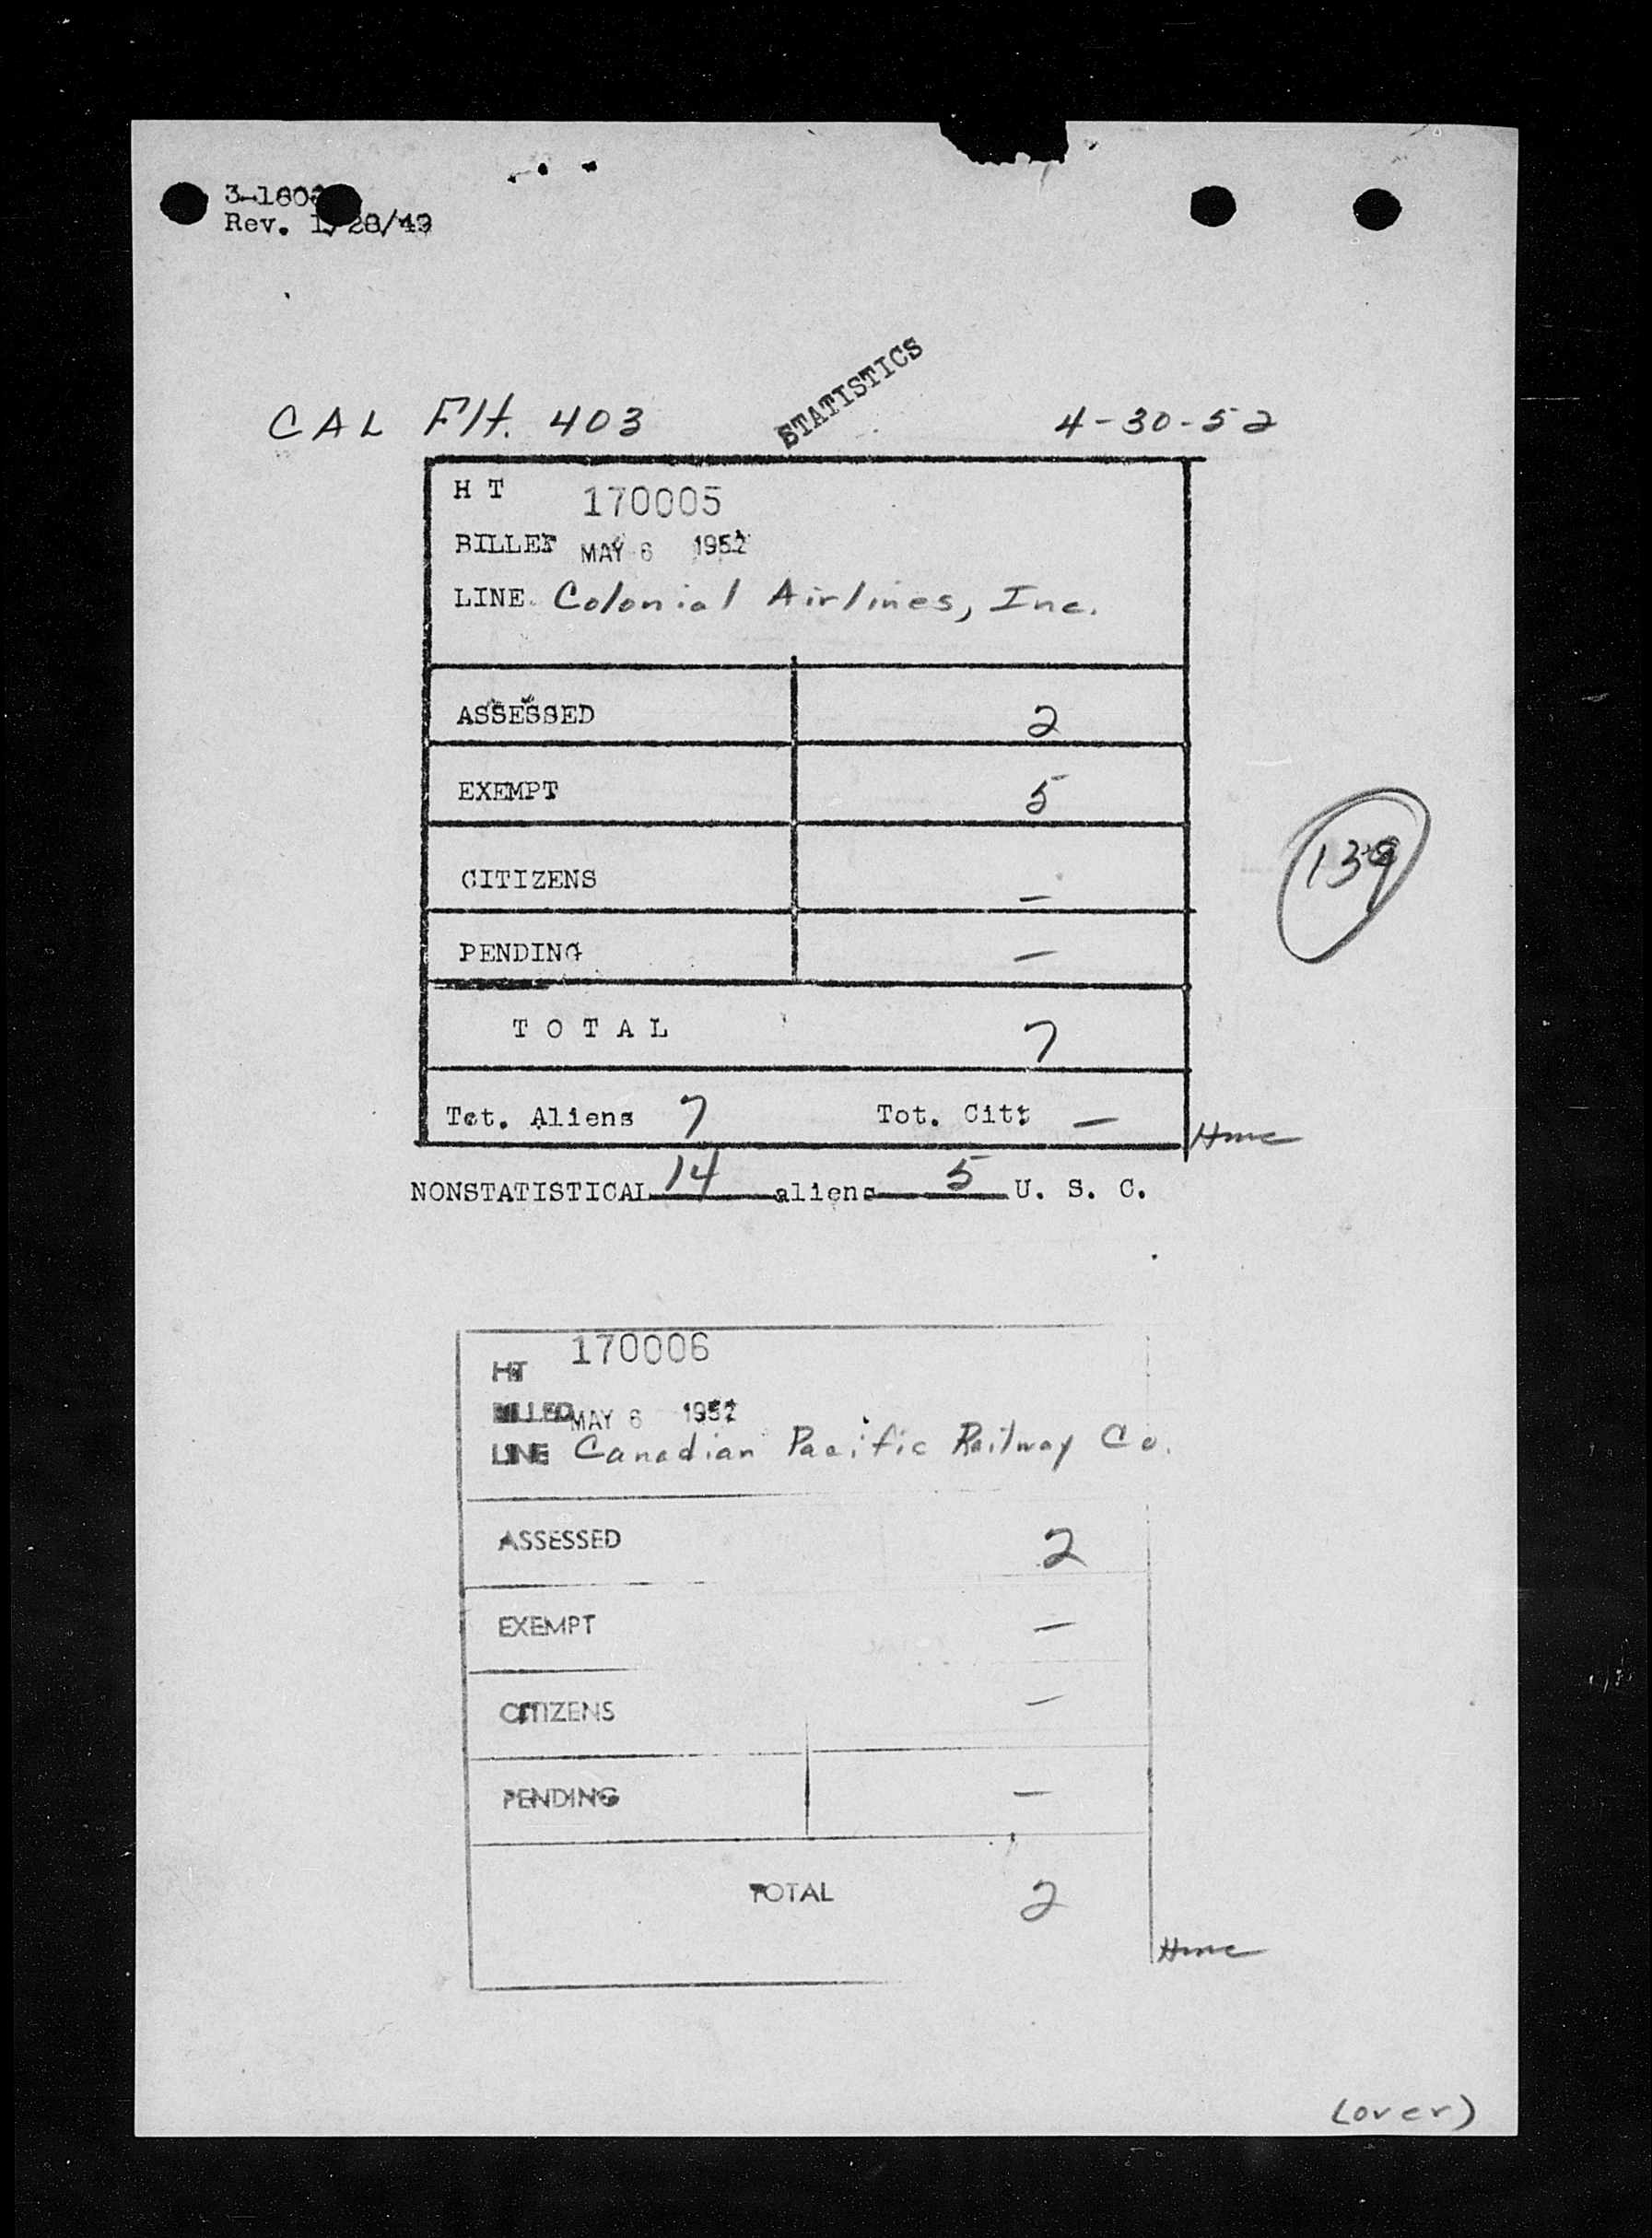 Rev. 1/28/49
STATISTICS
CAL Flt. 403 4-30-52
H T 170005
BILLED MAY 6 1952
LINE Colonial Airlines, Inc.
ASSESSED 2
EXEMPT 5
CITIZENS —
139
PENDING —
T O T A L 7
Tot. Aliens 7 Tot. Cit: —
NONSTATISTICAL 14 aliens 5 U. S. C.
HT 170006
BILLED MAY 6 1952
LINE Canadian Pacific Railway Co.
ASSESSED 2
EXEMPT —
CITIZENS —
PENDING —
TOTAL 2
(over)